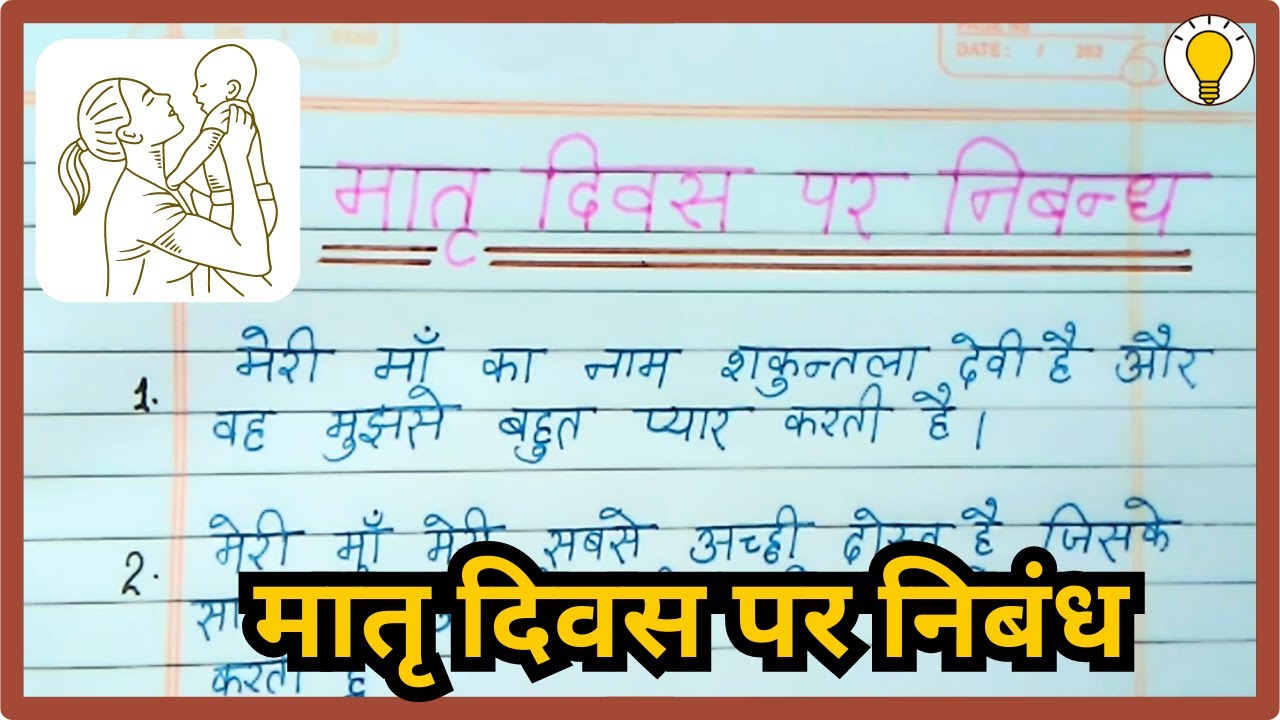 DATE: / 202
मातृ दिवस पर निबन्ध
1. मेरी माँ का नाम शकुन्तला देवी है और
वह मुझसे बहुत प्यार करती है।
2. मेरी माँ मेरी सबसे अच्छी दोस्त है जिसके
करता है
मातृ दिवस पर निबंध